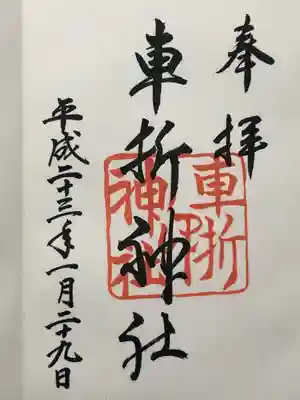 奉拝
車折神社
車折神社
平成二十三年一月二十九日